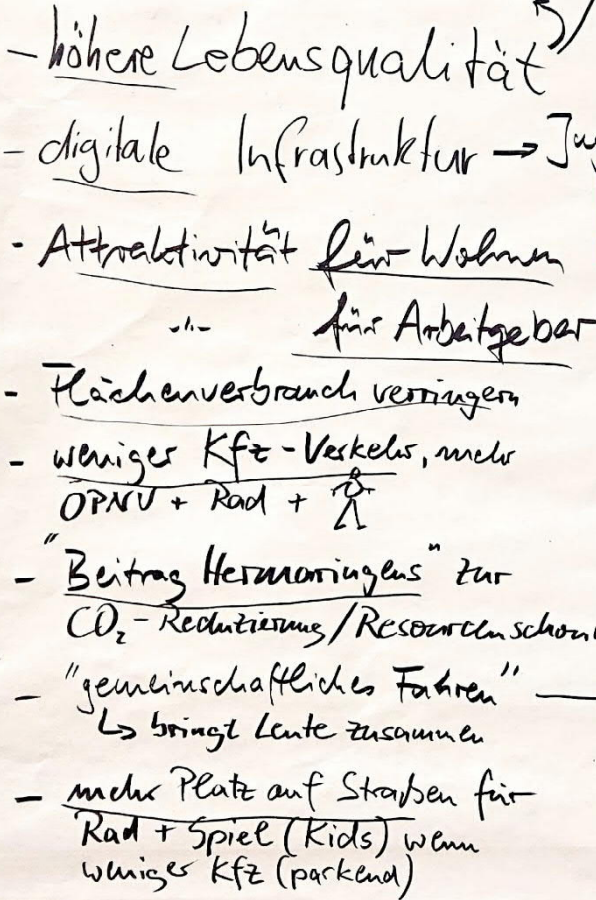 - höhere Lebensqualität
- digitale Infrastruktur →
- Attraktivität für Wohnen
-"- für Arbeitgeber
- Flächenverbrauch verringern
- weniger Kfz-Verkehr, mehr
ÖPNV + Rad +
- "Beitrag Hermaringens" zur
CO₂-Reduzierung/Resourcenschon
- "gemeinschaftliches Fahren" —
↳ bringt Leute zusammen
- mehr Platz auf Straßen für
Rad + Spiel (Kids) wenn
weniger Kfz (parkend)